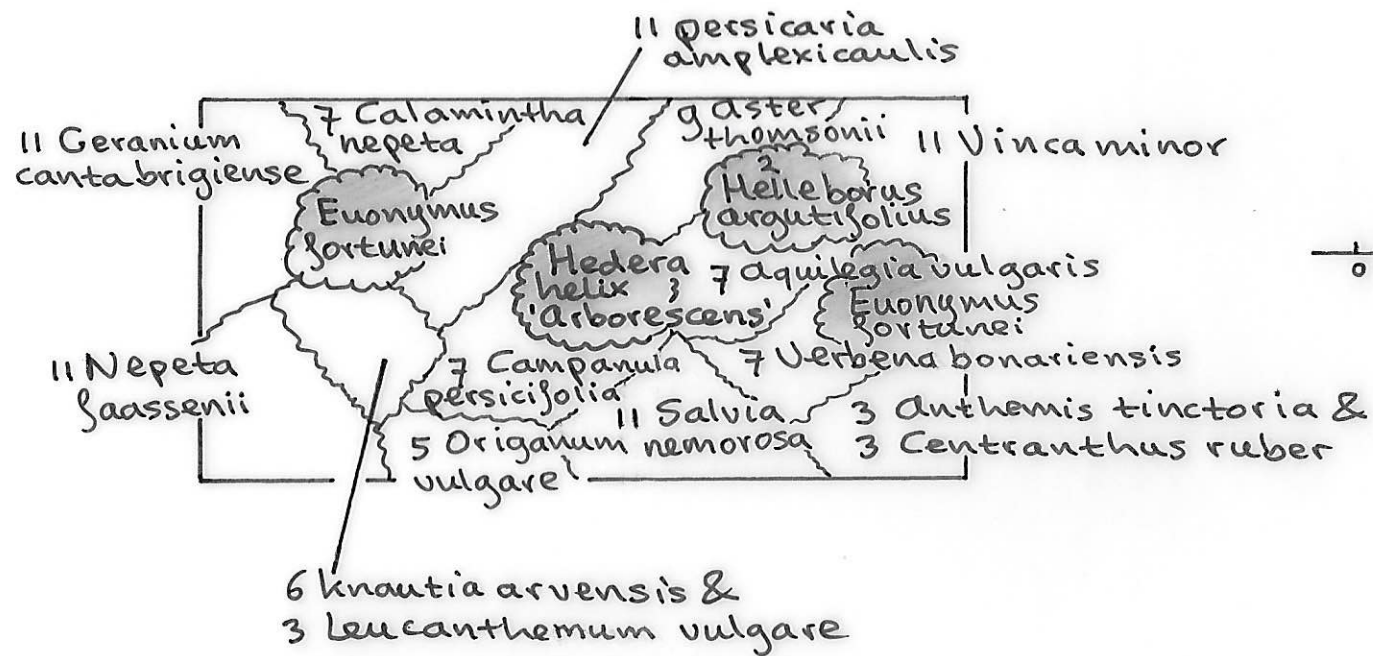 11 persicaria
amplexicaulis
7 Calamintha
nepeta
9 aster
thomsonii
11 Geranium
cantabrigiense
11 Vinca minor
2
Helleborus
argutifolius
Euonymus
fortunei
Hedera
helix 3
'arborescens'
7 aquilegia vulgaris
Euonymus
fortunei
0
11 Nepeta
faassenii
7 Campanula
persicifolia
7 Verbena bonariensis
11 Salvia
nemorosa
3 anthemis tinctoria &
3 Centranthus ruber
5 Origanum
vulgare
6 knautia arvensis &
3 Leucanthemum vulgare